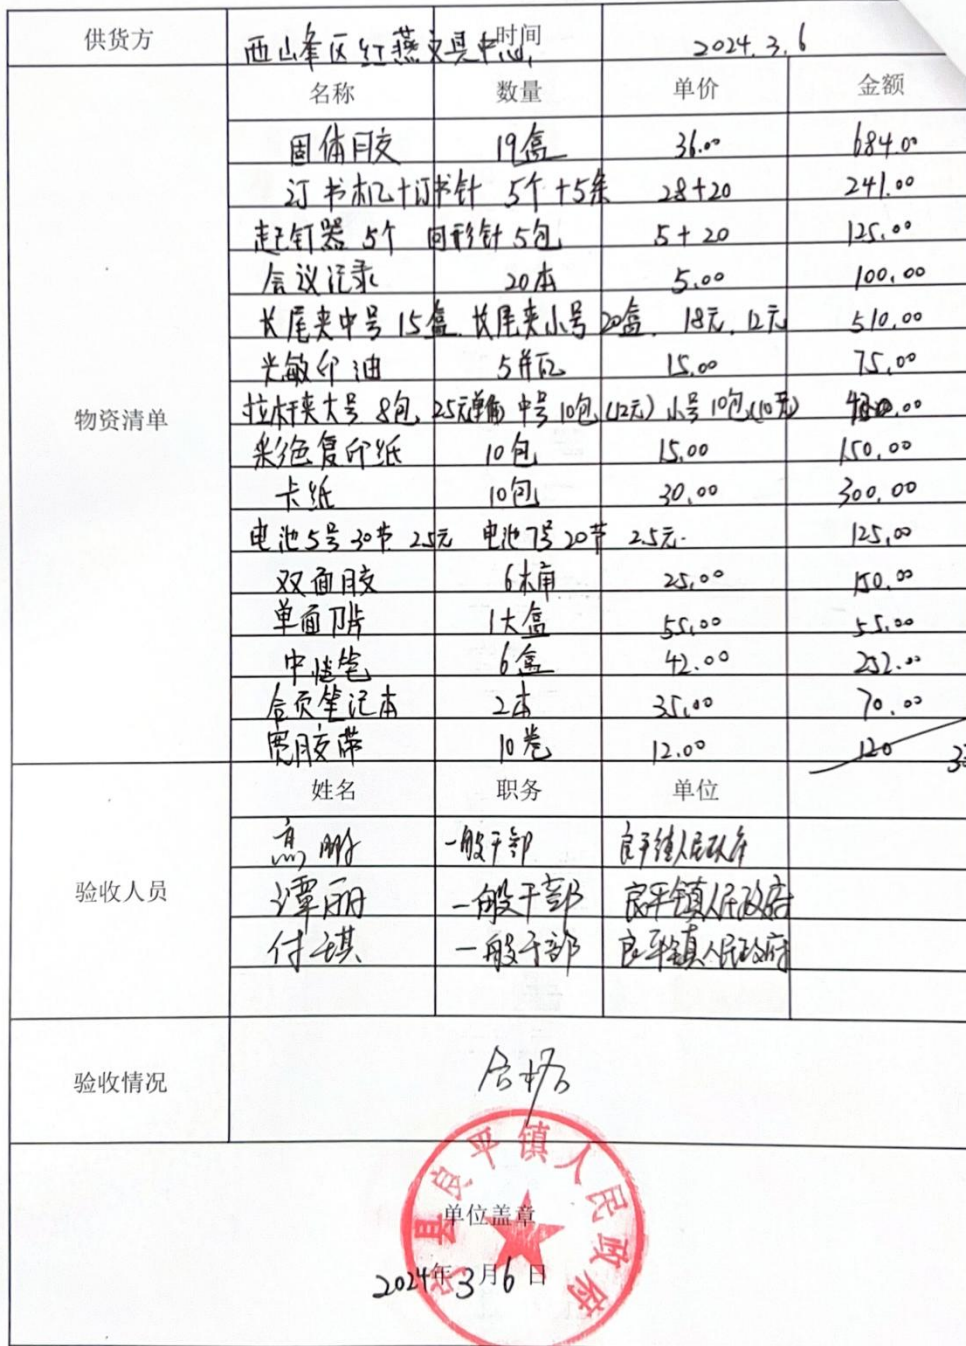 供货方 西山峯区红燕文具中心 时间 2024.3.6
物资清单
名称 数量 单价 金额
固体胶 19盒 36.00 684.00
订书机+订书针 5个+5条 28+20 241.00
起钉器 5个 回形针 5包 5+20 125.00
会议记录 20本 5.00 100.00
长尾夹中号 15盒. 长尾夹小号 20盒. 18元. 12元 510.00
光敏印油 5瓶 15.00 75.00
拉杆夹大号 8包, 25元 中号10包 (12元) 小号10包(10元)
彩色复印纸 10包 15.00 150.00
卡纸 10包 30.00 300.00
电池5号 30节 2.5元 电池7号 20节 2.5元. 125.00
双面胶 6桶 25.00 150.00
单面刀片 1大盒 55.00 55.00
中性笔 6盒 42.00 252.00
合页笔记本 2本 35.00 70.00
宽胶带 10卷 12.00 120
验收人员
姓名 职务 单位
高鹏 一般干部 良平镇人民政府
谭丽 一般干部 良平镇人民政府
付琪 一般干部 良平镇人民政府
验收情况 合格
宁县良平镇人民政府
单位盖章
2024年3月6日